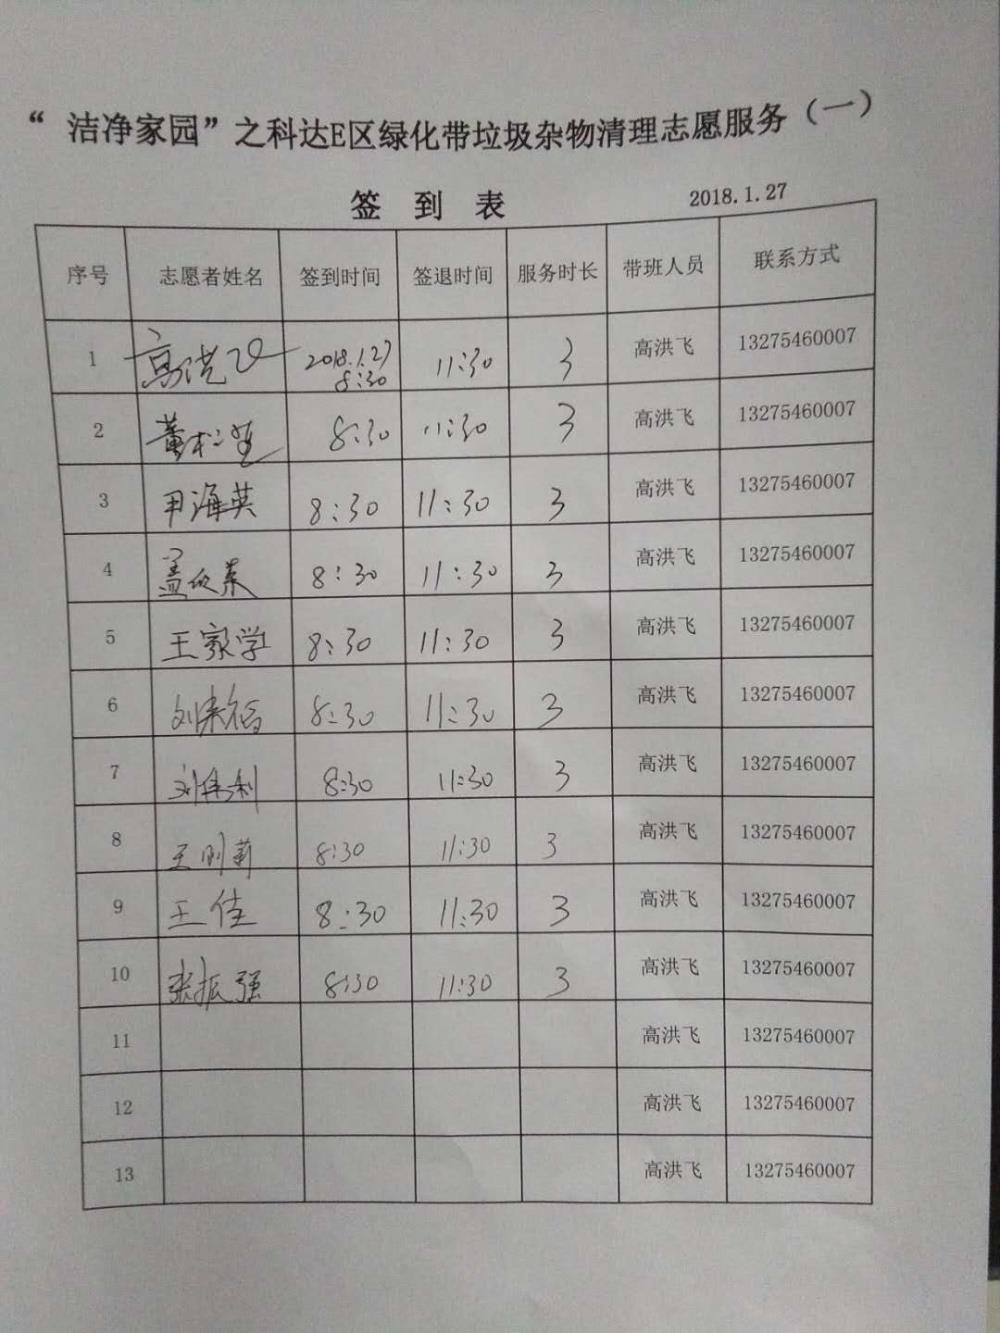 “洁净家园”之科达E区绿化带垃圾杂物清理志愿服务（一）
签 到 表 2018.1.27
序号 志愿者姓名 签到时间 签退时间 服务时长 带班人员 联系方式
1 高洪飞 2018.1.27 8:30 11:30 3 高洪飞 13275460007
2 董 8:30 11:30 3 高洪飞 13275460007
3 尹海英 8:30 11:30 3 高洪飞 13275460007
4 盖 8:30 11:30 3 高洪飞 13275460007
5 王家学 8:30 11:30 3 高洪飞 13275460007
6 刘 8:30 11:30 3 高洪飞 13275460007
7 刘伟利 8:30 11:30 3 高洪飞 13275460007
8 王刚莉 8:30 11:30 3 高洪飞 13275460007
9 王佳 8:30 11:30 3 高洪飞 13275460007
10 张振强 8:30 11:30 3 高洪飞 13275460007
11 高洪飞 13275460007
12 高洪飞 13275460007
13 高洪飞 13275460007